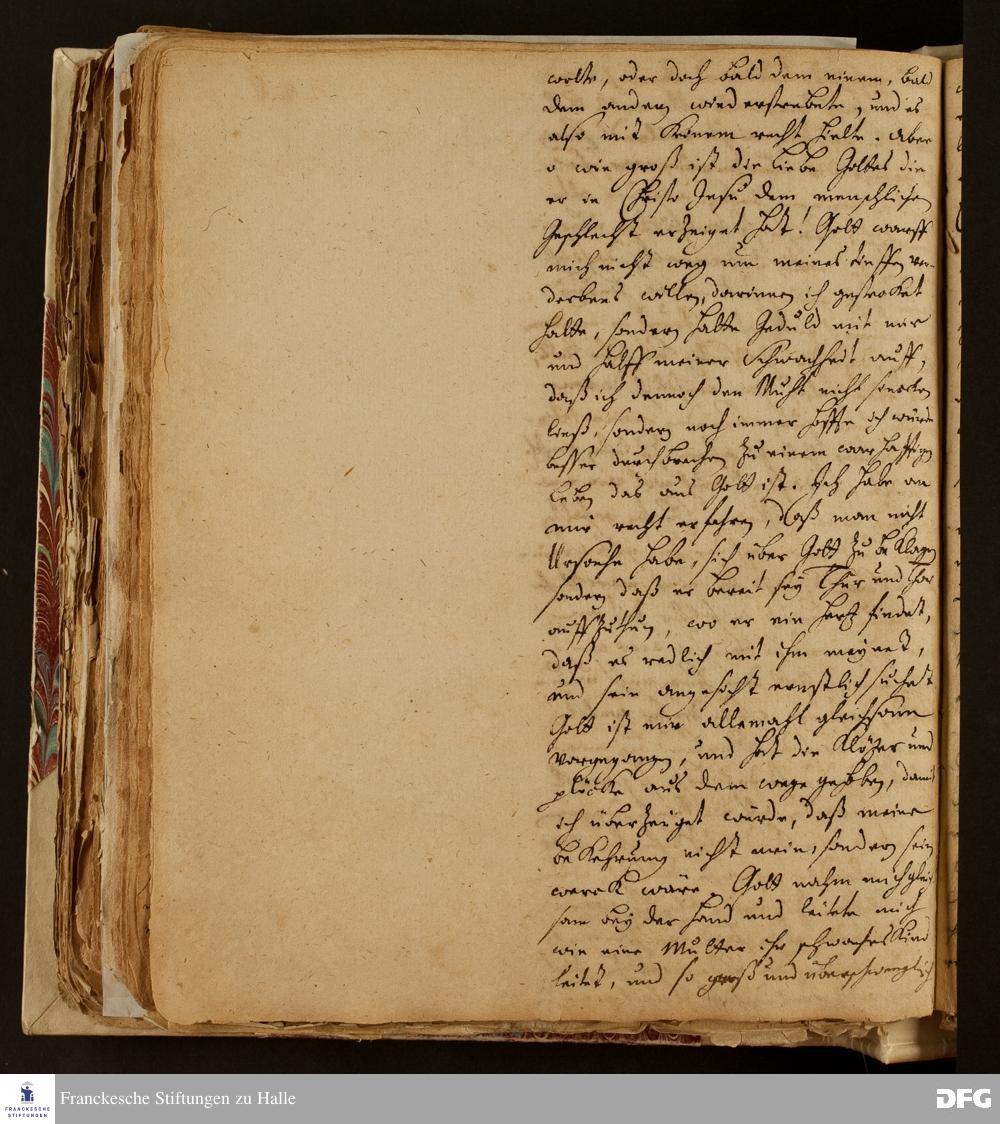 wolte, oder doch bald dem einem, bald
dem andern wiederstrebete, und es
also mit keinem recht hielte. Aber
o wie groß ist die liebe Gottes die
er in Christo Jesu dem menschlichen
Geschlecht erzeiget hat! Gott warff
mich nicht weg um meines tieffen ver-
derbens willen, darinnen ich gestecket
hatte, sondern hatte Gedult mit mir
und halff meiner Schwachheit auff,
daß ich dennoch den Muht nicht sincken
ließ, sondern noch immer hoffte ich würde
besser durchbrechen zu einem warhafftigen
Leben das aus Gott ist. Ich habe an
mir recht erfahren, daß man nicht
Ursache habe, sich über Gott zu beklagen
sondern daß er bereit sey Thür und Thor
auffzuthun, wo er ein hertz findet,
daß es redlich mit ihm meynet,
und sein angesicht ernstlich suchet
Gott ist mir allemahl gleichsam
vorgegangen, und hat die Klötzer und
plöcke aus dem wege gehoben, damit
ich überzeuget würde, daß meine
bekehrung nicht mein, sondern sein
werck wäre. Gott nahm mich gleich
sam bey der hand und leitete mich
wie eine Mutter ihr schwaches Kind
leitet, und so groß und überschwenglich
FRANCKESCHE
STIFTUNGEN
Franckesche Stiftungen zu Halle
DFG